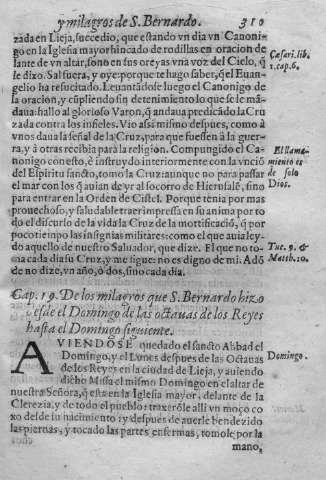 y milagros de S. Bernardo. 310
zada en Lieja, sucedio, que estando vn dia vn Canoni-
go en la Iglesia mayor hincado de rodillas en oracion de
lante de vn altar, sonò en sus oreyas vna voz del Cielo, q̃
le dizo. Sal fuera, y oye: porque te hago saber, q̃ el Euan-
gelio ha resucitado. Leuantãdose luego el Canonigo de
la oracion, y cũpliendo sin detenimiento lo que se le mã-
daua: hallo al glorioso Varon, q̃ andaua predicãdo la Cru
zada contra los infieles. Vio assi mismo despues, como à
vnos daua la señal de la Cruz, para que fuessen à la guer-
ra, y à otras recibia para la religion. Compungido el Ca-
nonigo con esto, è instruydo interiormente con la vnciõ
del Espiritu sancto, tomo la Cruz: aunque no para passar
el mar con los q̃ auian de yr al socorro de Hierusalẽ, sino
para entrar en la Orden de Cistel. Porque tenia por mas
prouechoso, y saludable traer impressa en su anima por to
do el discurso de la vida la Cruz de la mortificaciõ, q̃ por
poco tiempo las insignias militares: como el que auia ley-
do aquello de nuestro Saluador, que dize. El que no to-
ma cada dia su Cruz, y me sigue: no es digno de mi. Adõ
de no dize, vn año, ò dos, sino cada dia.
Cæsari. lib.
1. cap. 6.
El llama-
miento es
de solo
Dios.
Luc. 9. &
Matth. 10.
Cap. 19. De los milagros que S. Bernardo hizo
desde el Domingo de las octauas de los Reyes
hasta el Domingo siguiente.
AVIENDOSE quedado el sancto Abbad el
Domingo, y el Lunes despues de las Octauas
de los Reyes en la ciudad de Lieja, y auiendo
dicho Missa el mismo Domingo en el altar de
nuestra Señora, q̃ està en la Iglesia mayor, delante de la
Clerezia, y de todo el pueblo: traxerõle alli vn moço co
xo desde su nacimiento: y despues de auerle bendezido
las piernas, y tocado las partes enfermas, tomole por la
Domingo.
mano,